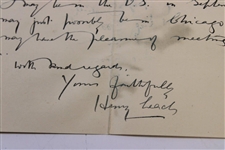 I may be in the U.S. in Septem
may just possibly be in Chicago
may have the pleasure of meeting
with kind regards.
Yours faithfully
Henry Leach